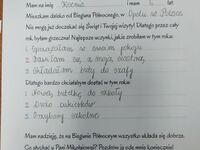 Mam na imię Ksenia i mam 6 lat
Mieszkam daleko od Bieguna Północnego, w Opolu w Polsce
Nie mogę już doczekać się Świąt i Twojej wizyty! Dlatego przez cały
rok byłam grzeczna! Najlepsze uczynki, jakie zrobiłam w tym roku:
1. Sprzątałam w swoim pokoju
2. Bawiłam się z moją siostrą
3. Składałam buty do szafy
Dlatego bardzo chciałabym dostać w tym roku:
1. Nową bluzkę do szkoły
2. Dużo cukierków
3. Przybory szkolne
Mam nadzieję, że na Biegunie Północnym wszystko układa się dobrze.
Co słychać u Pani Mikołajowej? Pozdrów ją ode mnie koniecznie!